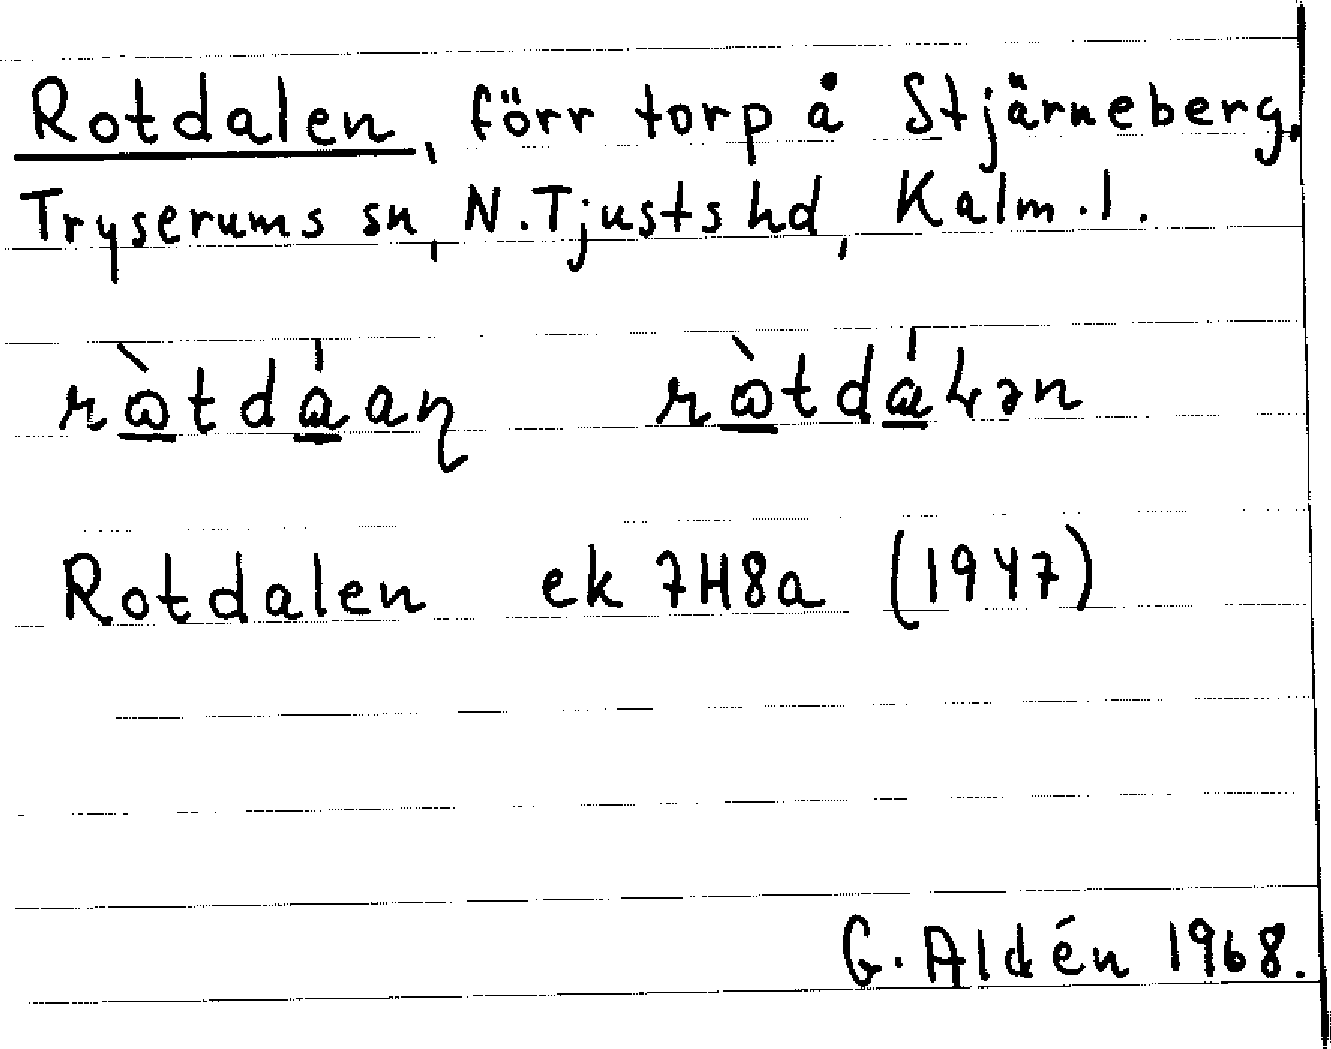 Rotdalen, förr torp å Stjärneberg,
Tryserums sn, N. Tjusts hd, Kalm. l.
Rotdalen ek 7H8a (1947)
G. Aldén 1968.